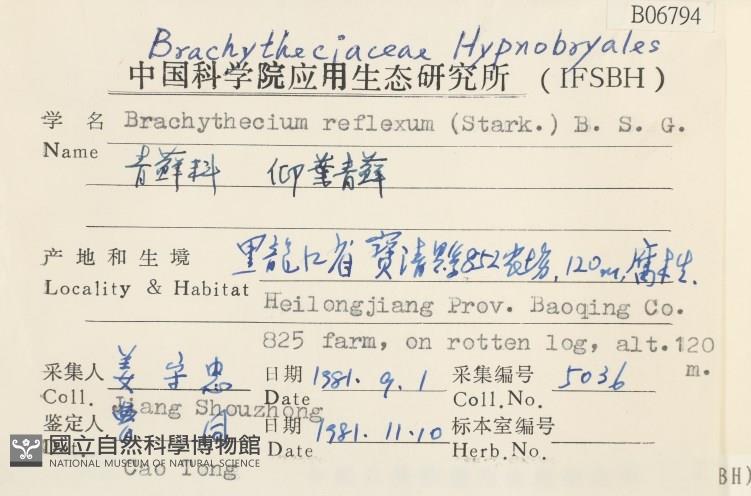 B06794
Brachytheciaceae Hypnobryales
中国科学院应用生态研究所 (IFSBH)
学 名 Brachythecium reflexum (Stark.) B. S. G.
Name
青藓科 仰葉青藓
产地和生境 黑龍江省 寶清縣852农场, 120m, 腐木生.
Locality & Habitat
Heilongjiang Prov. Baoqing Co.
825 farm, on rotten log, alt. 120 m.
采集人 姜守忠 日期 1981. 9. 1 采集编号 5036
Coll. Jiang Shouzhong Date Coll.No.
鉴定人 曹同 日期 1981. 11. 10 标本室编号
Date Herb.No.
Cao Tong
國立自然科學博物館
NATIONAL MUSEUM OF NATURAL SCIENCE
BH)